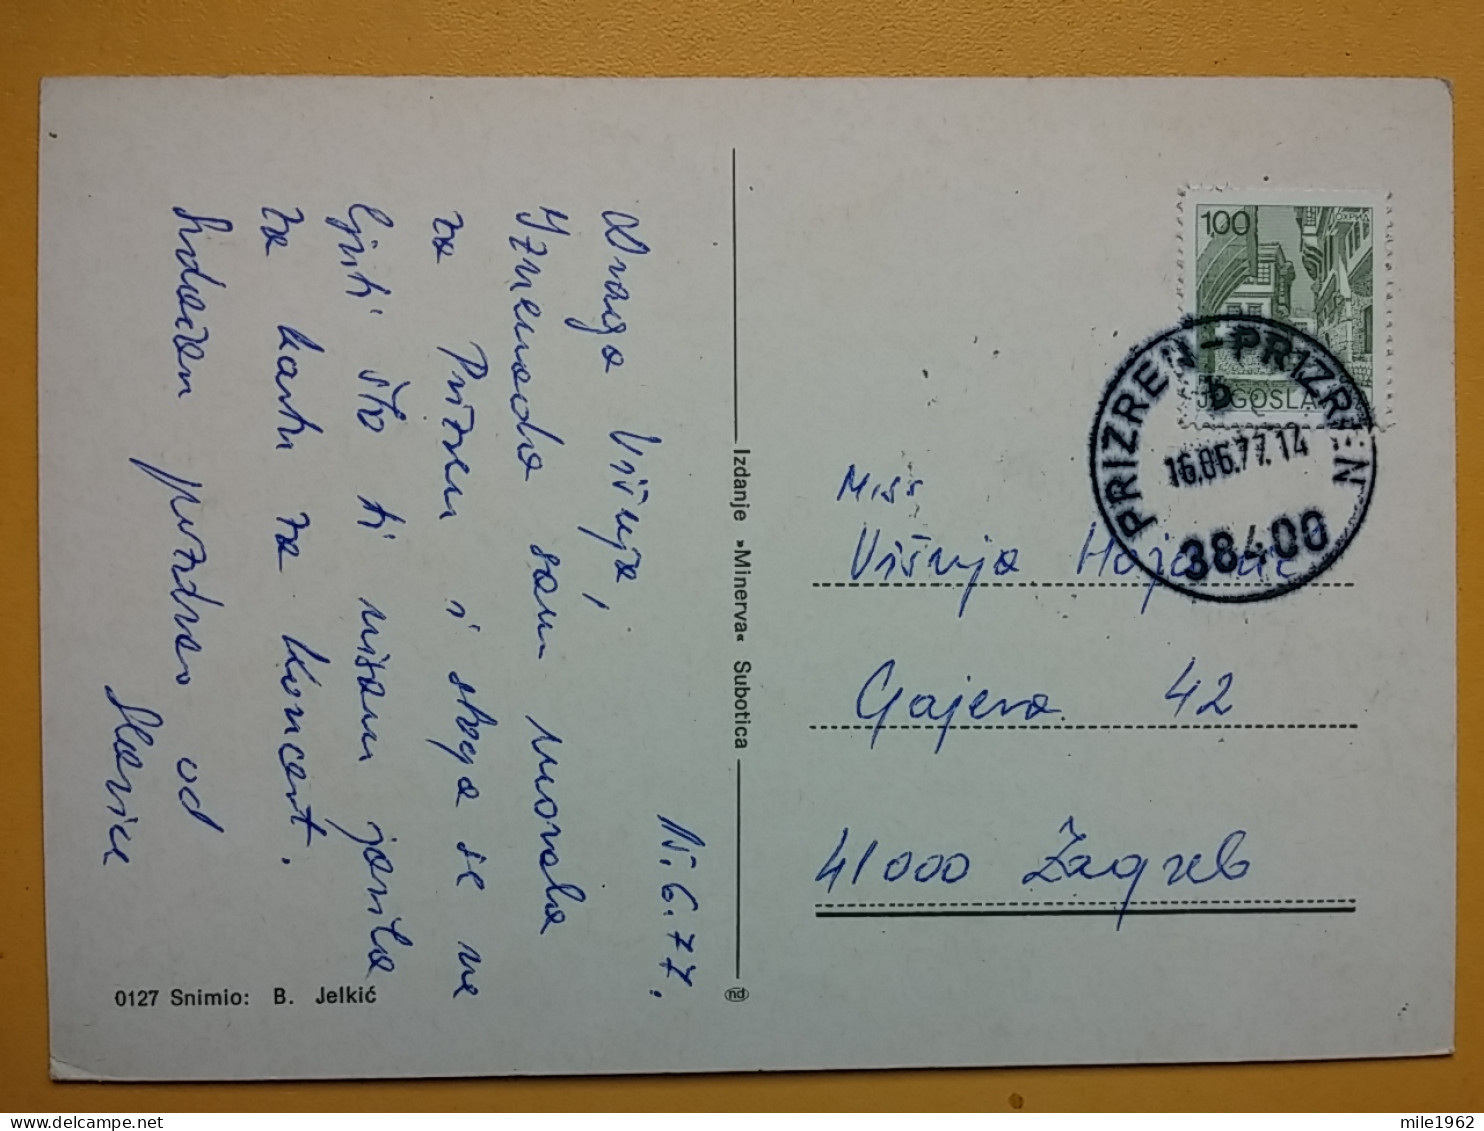 15.6.77.
Draga Višnja,
Iznenada sam morala
za Prizren i stoga se ne
ljuti što ti nisam javila
za kartu za koncert.
Srdačan pozdrav od
Slavice
0127 Snimio: B. Jelkić
Izdanje »Minerva« Subotica
nd
100
ОХРИД
JUGOSLA
PRIZREN-PRIZREN
b
16.06.77.14
38400
Miss
Višnja
Gajeva 42
41000 Zagreb
mile1962